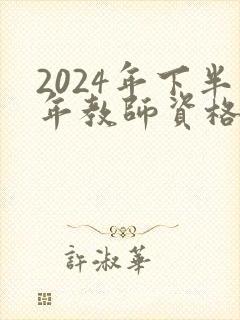 2024年下半
年教師資格
許淑華